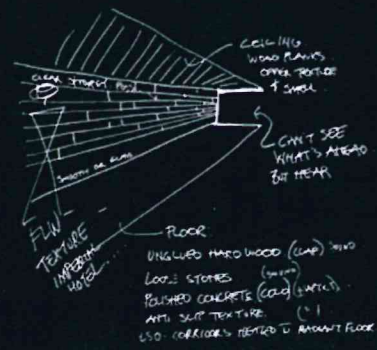 CEILING
WOOD PLANKS
OTHER TEXTURE
& SMELL
CLEAR STOREY
CAN'T SEE
WHAT'S AHEAD
BUT HEAR
SMOOTH OR GLASS
FLW
TEXTURE
IMPERIAL
HOTEL...
FLOOR
UNGLUED HARDWOOD (CLAP) SOUND
LOOSE STONES (SOUND)
POLISHED CONCRETE (COLD)
ANTI SLIP TEXTURE
CORRIDORS HEATED RADIANT FLOOR